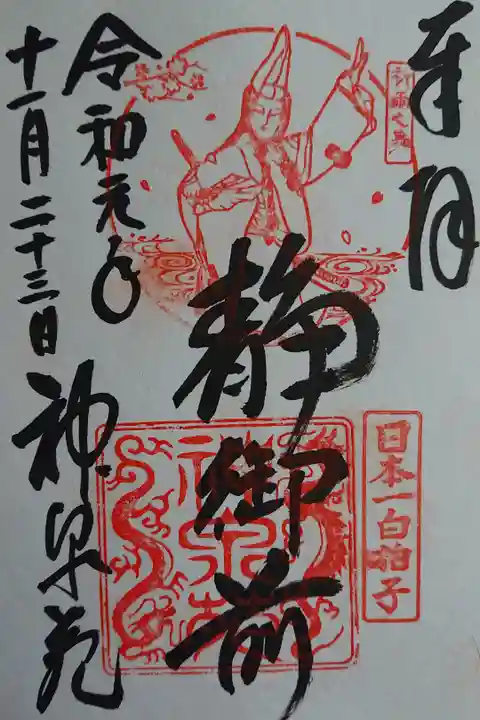 奉拝
祈雨之舞
静御前
日本一白拍子
神泉苑
令和元年
十一月二十三日
神泉苑